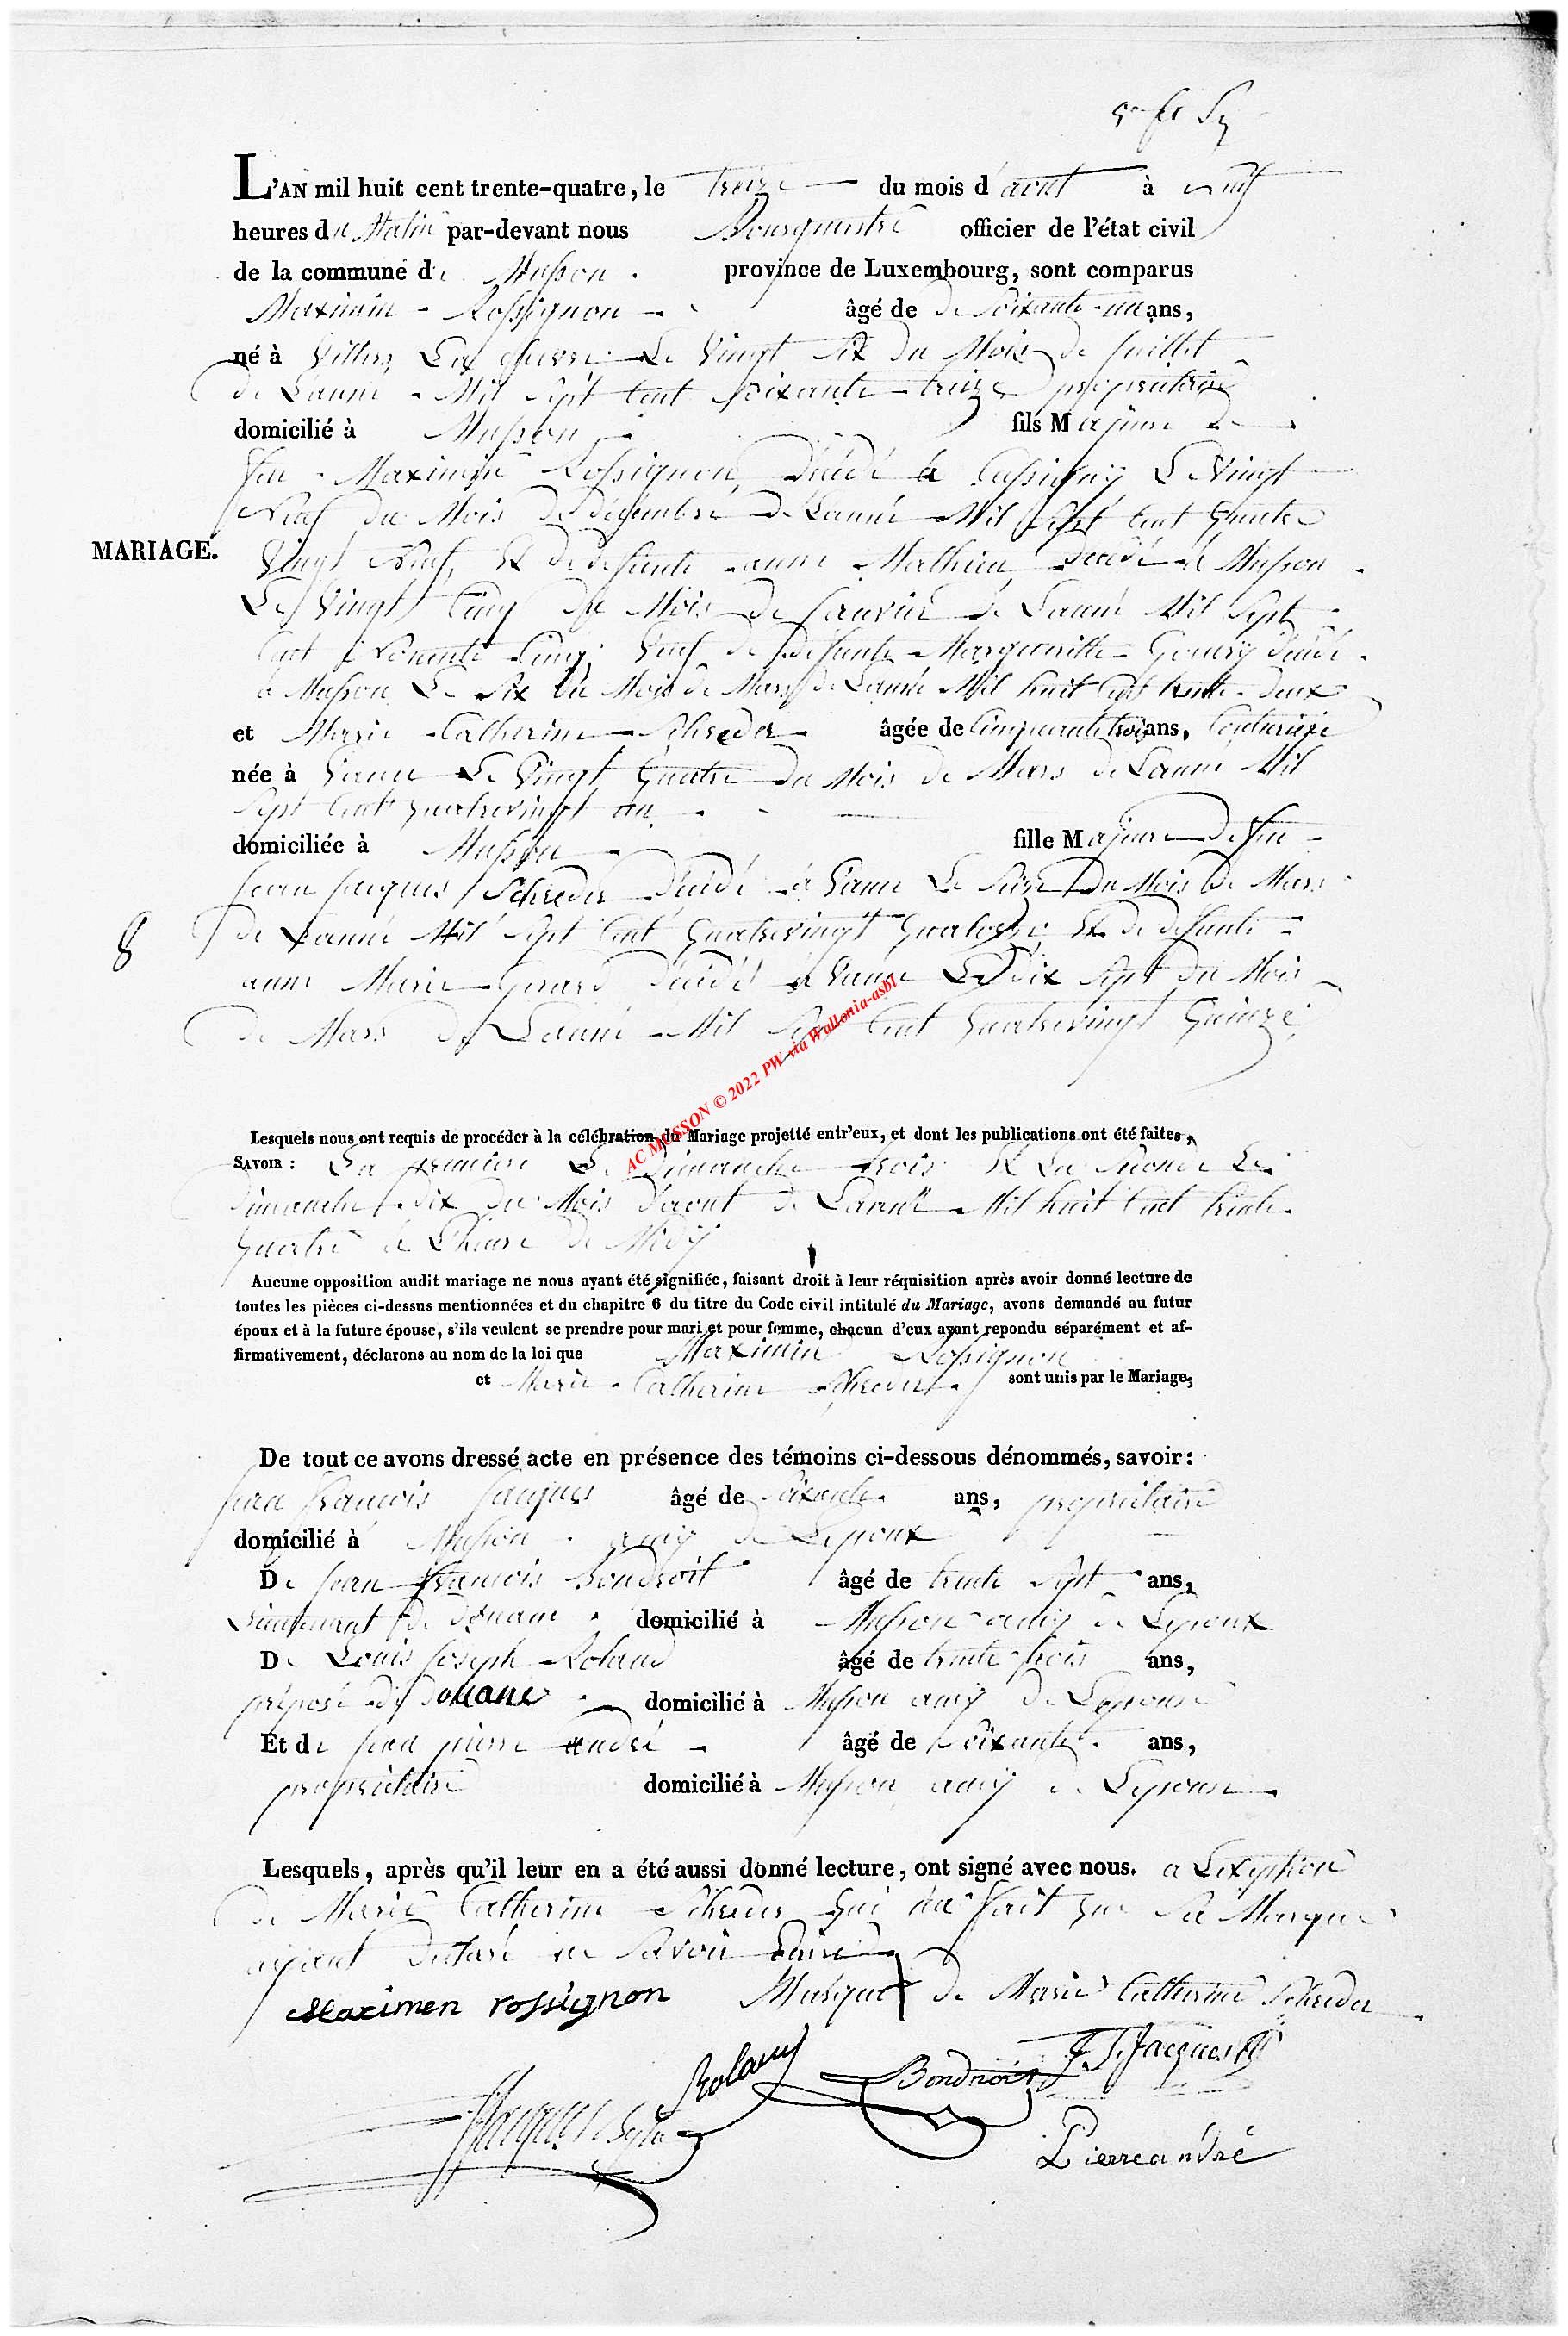 L'AN mil huit cent trente-quatre, le treize du mois d'aout à neuf
heures du Matin par-devant nous Bourguestre officier de l'état civil
de la commune de Musson. province de Luxembourg, sont comparus
Maximin Rossignon âgé de de soixante-un ans,
né à Villers La Le Vingt Six Du Mois de Juillet
de Lanné Mil Sept Cent soixante treize propriétaire
domicilié à Musson fils Majeure de
feu Maximin Rossignon Décédé à Cussigny Le Vingt
Neuf du Mois De décembre De Lanné Mil Sept Cent Quatre
MARIAGE.
Vingt Neuf, Et de defunte anne Mathieu Décédé à Musson
Le Vingt Cinq du Mois de Janvier de Lanné Mil Sept
Cent Cinq, Veuf de defunte Marguerite Goury décédé
à Musson Le Six du Mois de Mars de Lanné Mil huit Cent trente-deux
et Marie Catherine Schreder âgée de Cinquante trois ans, Couturière
née à Vance Le Vingt Quatre Du Mois de Mars de Lanné Mil
Sept Cent Quatrevingt un
domiciliée à Musson fille Majeure De feu
Jean Jacques Schreder Décédé à Vance Le Seize Du Mois De Mars
8
de Lanné Mil Sept Cent Quatrevingt Quatorze Et de defunte
anne Marie Gerard Décédé à Vance Le Dix Sept du Mois
de Mars de Lanné Mil Sept Cent Quatrevingt Quinze
AC MUSSON © 2022 PW via Wallonia-asbl
Lesquels nous ont requis de procéder à la célébration du Mariage projetté entr'eux, et dont les publications ont été faites,
SAVOIR : La premiere Le Dimanche trois Et La Seconde Le
Dimanche dix du Mois D'aout de Lanné Mil huit Cent trente
Quatre à Lheure de Midy
Aucune opposition audit mariage ne nous ayant été signifiée, faisant droit à leur réquisition après avoir donné lecture de
toutes les pièces ci-dessus mentionnées et du chapitre 6 du titre du Code civil intitulé du Mariage, avons demandé au futur
époux et à la future épouse, s'ils veulent se prendre pour mari et pour femme, chacun d'eux ayant repondu séparément et af-
firmativement, déclarons au nom de la loi que Maximin Rossignon
et Marie Catherine Schreder sont unis par le Mariage;
De tout ce avons dressé acte en présence des témoins ci-dessous dénommés, savoir :
Jean François Jacques âgé de soixante ans, propriétaire
domicilié à Musson amy de Lepoux
De Jean François Bondroit âgé de trente Sept ans,
Lieutenant de Douane domicilié à Musson amy de Lepoux
De Louis Joseph Roland âgé de trente trois ans,
préposé de Douane domicilié à Musson amy de Lepouse
Et de Jean pierre andré âgé de soixante ans,
propriétaire domicilié à Musson amy de Lepouse
Lesquels, après qu'il leur en a été aussi donné lecture, ont signé avec nous. a Lexeption
de Marie Catherine Schreder Qui n'a fait Que Sa Marque
ayant Déclaré ne Savoir Ecrire
Maximen rossignon Marque de Marie Catherine Schreder
Roland Bondroit J. f. Jacques
Pierreandré